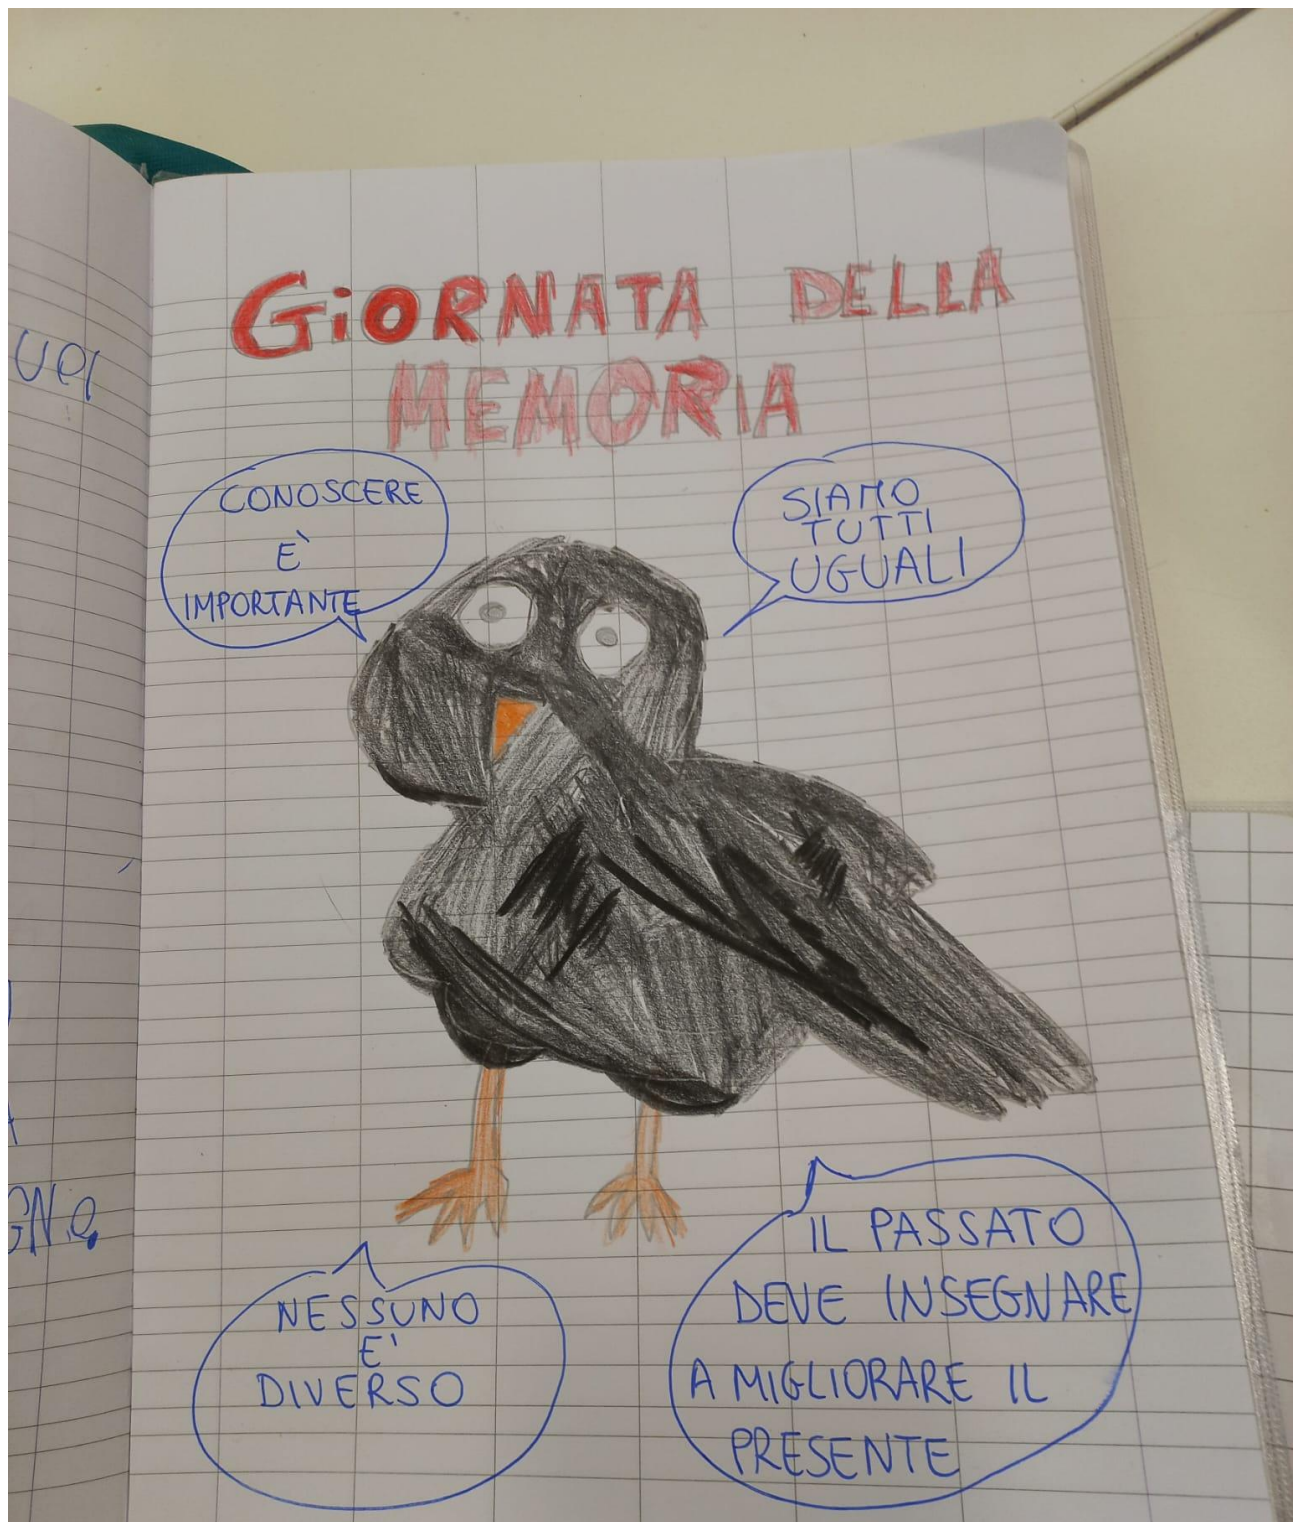 GiORNATA DELLA
MEMORIA
CONOSCERE
È
IMPORTANTE
SIAMO
TUTTI
UGUALI
NESSUNO
E'
DIVERSO
IL PASSATO
DEVE INSEGNARE
A MIGLIORARE IL
PRESENTE